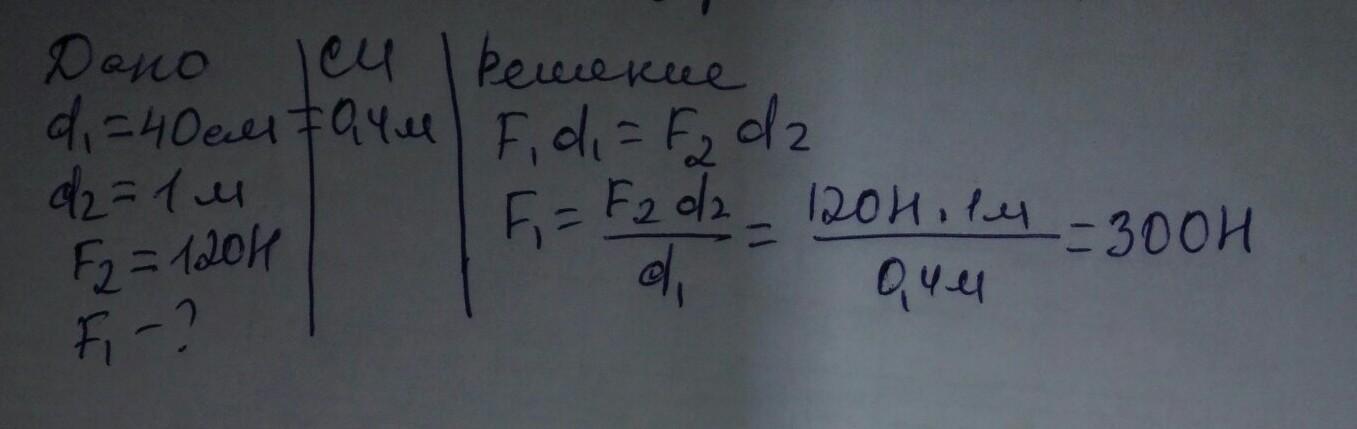 Дано СИ Решение
d₁ = 40см = 0,4м F₁ d₁ = F₂ d₂
d₂ = 1 м
F₁ = F₂ d₂ / d₁ = 120Н · 1м / 0,4м = 300Н
F₂ = 120Н
F₁ – ?